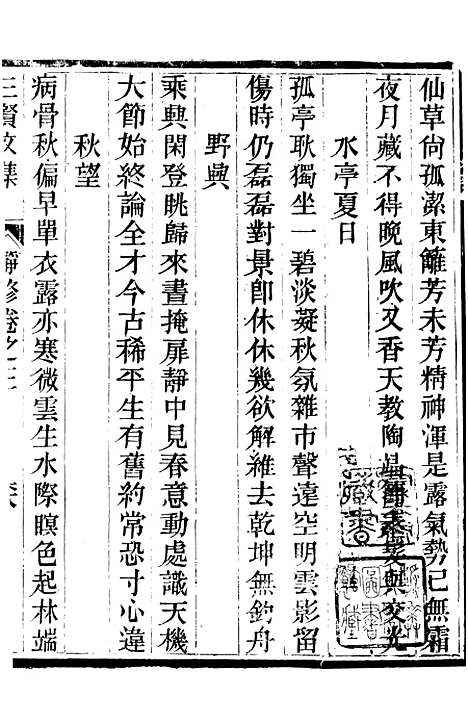 仙草尙孤潔東籬芳未芳精神渾是露氣勢已無霜
夜月藏不得晚風吹又香天教陶
與交光
水亭夏日
孤亭耿獨坐一碧淡凝秋氛雜市聲遠空明雲影留
傷時仍磊磊對景卽休休幾欲解維去乾坤無釣舟
野興
乘興閑登眺歸來晝掩扉靜中見春意動處識天機
大節始終論全才今古稀平生有舊約常恐寸心違
秋望
病骨秋偏早單衣露亦寒微雲生水際暝色起林端
三賢文集
靜修卷之三
六